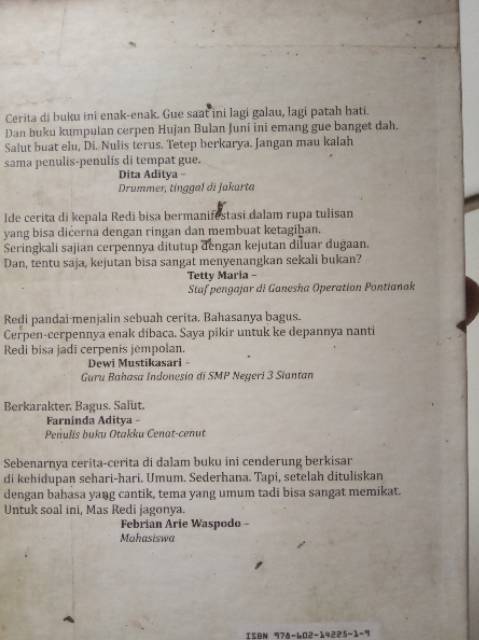 Cerita di buku ini enak-enak. Gue saat ini lagi galau, lagi patah hati.
Dan buku kumpulan cerpen Hujan Bulan Juni ini emang gue banget dah.
Salut buat elu, Di. Nulis terus. Tetep berkarya. Jangan mau kalah
sama penulis-penulis di tempat gue.
Dita Aditya –
Drummer, tinggal di Jakarta
Ide cerita di kepala Redi bisa bermanifestasi dalam rupa tulisan
yang bisa dicerna dengan ringan dan membuat ketagihan.
Seringkali sajian cerpennya ditutup dengan kejutan diluar dugaan.
Dan, tentu saja, kejutan bisa sangat menyenangkan sekali bukan?
Tetty Maria –
Staf pengajar di Ganesha Operation Pontianak
Redi pandai menjalin sebuah cerita. Bahasanya bagus.
Cerpen-cerpennya enak dibaca. Saya pikir untuk ke depannya nanti
Redi bisa jadi cerpenis jempolan.
Dewi Mustikasari –
Guru Bahasa Indonesia di SMP Negeri 3 Siantan
Berkarakter. Bagus. Salut.
Farninda Aditya –
Penulis buku Otakku Cenat-cenut
Sebenarnya cerita-cerita di dalam buku ini cenderung berkisar
di kehidupan sehari-hari. Umum. Sederhana. Tapi, setelah dituliskan
dengan bahasa yang cantik, tema yang umum tadi bisa sangat memikat.
Untuk soal ini, Mas Redi jagonya.
Febrian Arie Waspodo –
Mahasiswa
ISBN 978-602-14225-1-9